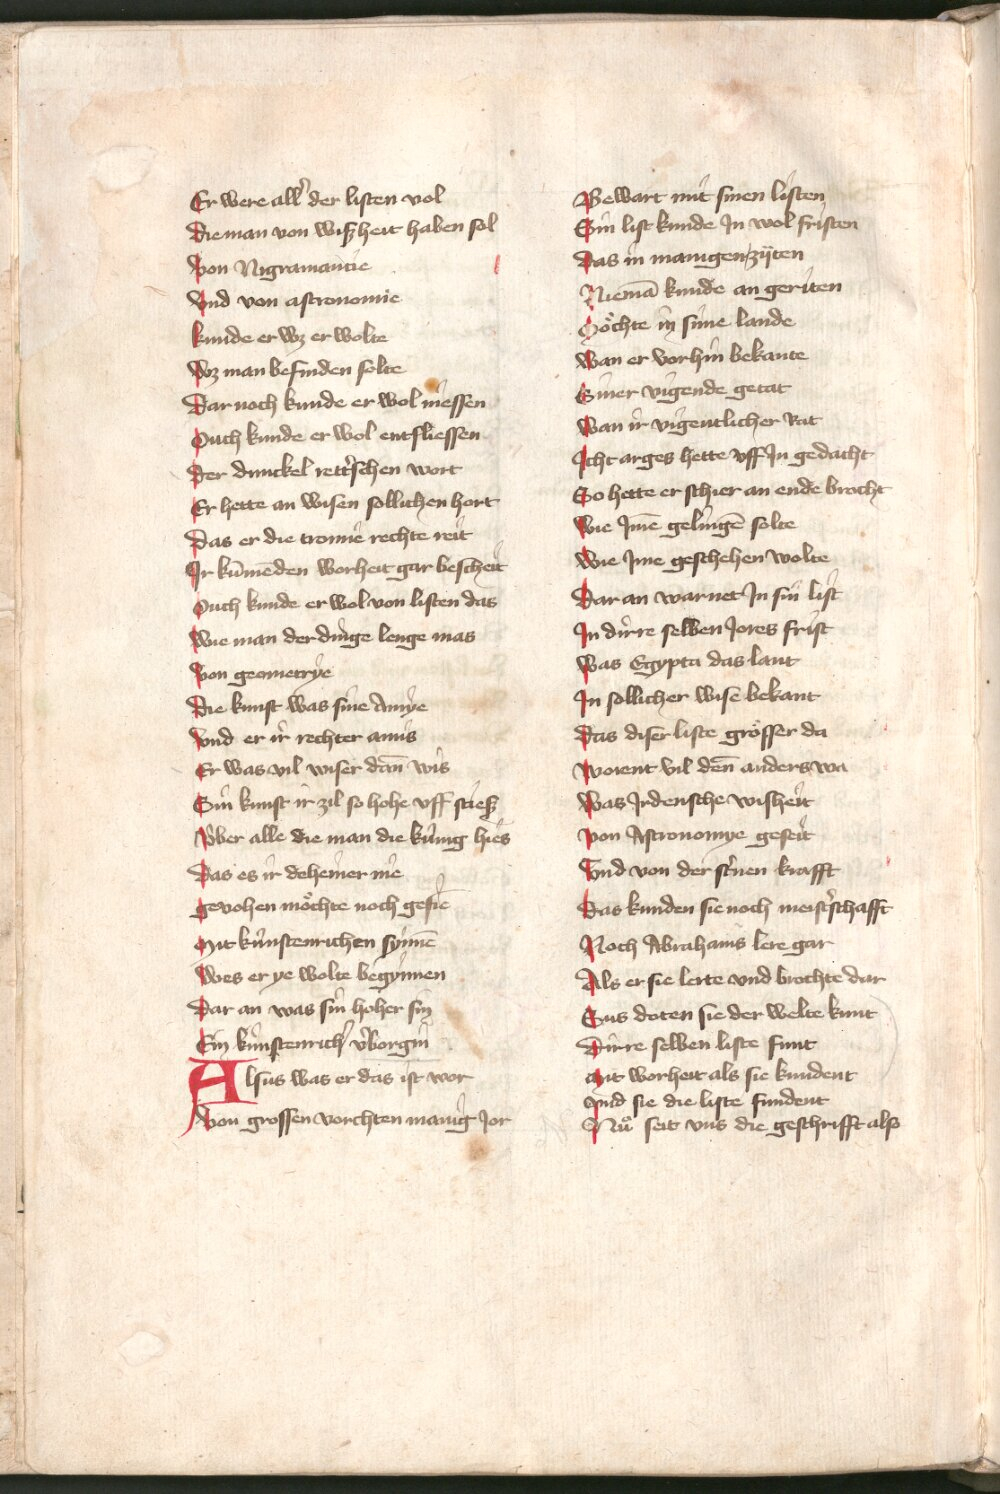 Er were all' der listen vol
Die man von wiszheit haben sol
Von Nigramancie
Vnd von astronomie
kunde er wz er wolte
Wz man befinden solte
Dar noch kunde er wol messen
Ouch kunde er wol entsliessen
Der dunckel rett'schen wort
Er hette an wisen sollichen hort
Das er die trome rechte reit
Ir kūmēden worheit gar bescheit
Ouch kunde er wol von listen das
Wie man der dinge lenge mas
Von geometrye
Die kunst was sine Amye
Vnd er ir rechter amis
Er was vil wiser dan̄ wis
Sin kunst ir zil so hohe vff stiesz
Vber alle die man die kunig hies
Das es ir deheiner me
gevohen möchte noch gesie
Mit kunstenrichen synnē
Wes er ye wolte begynnen
Dar an was sin hoher sin
Ein kunstenrich' v'borgin
Alsus was er das ist wor
Von grossen vorchten manig Jor
Bewart mit sinen listen
Sin list kunde In wol fristen
Das in manigen zÿten
Niemā kunde an geriten
Möchte in sime lande
Wan er vorhin bekante
Siner vigende getat
Wan ir vigentlicher Rat
Icht arges hette vff In gedacht
So hette er schier an ende brocht
Wie Imē gelingē solte
Wie Ime geschehen wolte
Dar an warnet In sin list
In dirre selben Jores frist
Was Egypta das lant
In sollicher wise bekant
Das diser liste grösser da
Worent vil den̄ anders wa
Was Irdensche wisheit
Von Astronomye geseit
Vnd von der st'nen krafft
Das kunden sie noch meist'schafft
Noch Abrahams lere gar
Als er sie lerte vnd brochte dar
Sus doten sie der welte kunt
Dirre selben liste funt
Mit worheit als sie kundent
Vnd sie die liste fundent
Nů seit vns die geschrifft also